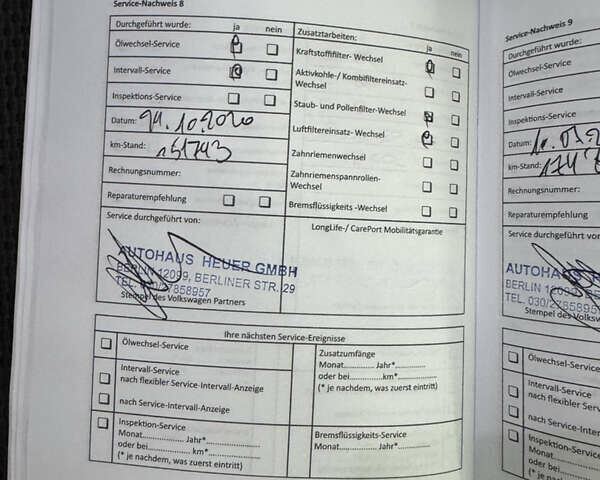 Service-Nachweis 8
Durchgeführt wurde: ja nein
Ölwechsel-Service
Intervall-Service
Inspektions-Service
Datum: 10.2020
km-Stand: 151743
Rechnungsnummer:
Reparaturempfehlung
Service durchgeführt von:
AUTOHAUS HEUER GMBH
BERLIN 12099, BERLINER STR. 29
TEL. 030/27858957
Stempel des Volkswagen Partners
Zusatzarbeiten: ja nein
Kraftstofffilter- Wechsel
Aktivkohle-/ Kombifiltereinsatz-
Wechsel
Staub- und Pollenfilter-Wechsel
Luftfiltereinsatz- Wechsel
Zahnriemenwechsel
Zahnriemenspannrollen-
Wechsel
Bremsflüssigkeits -Wechsel
LongLife-/ CarPort Mobilitätsgarantie
Ihre nächsten Service-Ereignisse
Ölwechsel-Service
Intervall-Service
nach flexibler Service-Intervall-Anzeige
nach Service-Intervall-Anzeige
Inspektion-Service
Monat............... Jahr*...............
oder bei............... km*...............
(* je nachdem, was zuerst eintritt)
Zusatzumfänge
Monat............... Jahr*...............
oder bei...............km*...............
(* je nachdem, was zuerst eintritt)
Bremsflüssigkeits-Service
Monat............... Jahr...............
Service-Nachweis 9
Durchgeführt wurde:
Ölwechsel-Service
Intervall-Service
Inspektions-Service
Datum:
km-Stand:
Rechnungsnummer:
Reparaturempfehlung
Service durchgeführt von
AUTOHA
BERLIN 12
TEL. 030/2785895
Stempel des Volksw
Ölwechsel-Service
Intervall-Service
nach flexibler Serv
nach Service-Interv
Inspektion-Service
Monat...............
oder bei...............
(* je nachdem, w